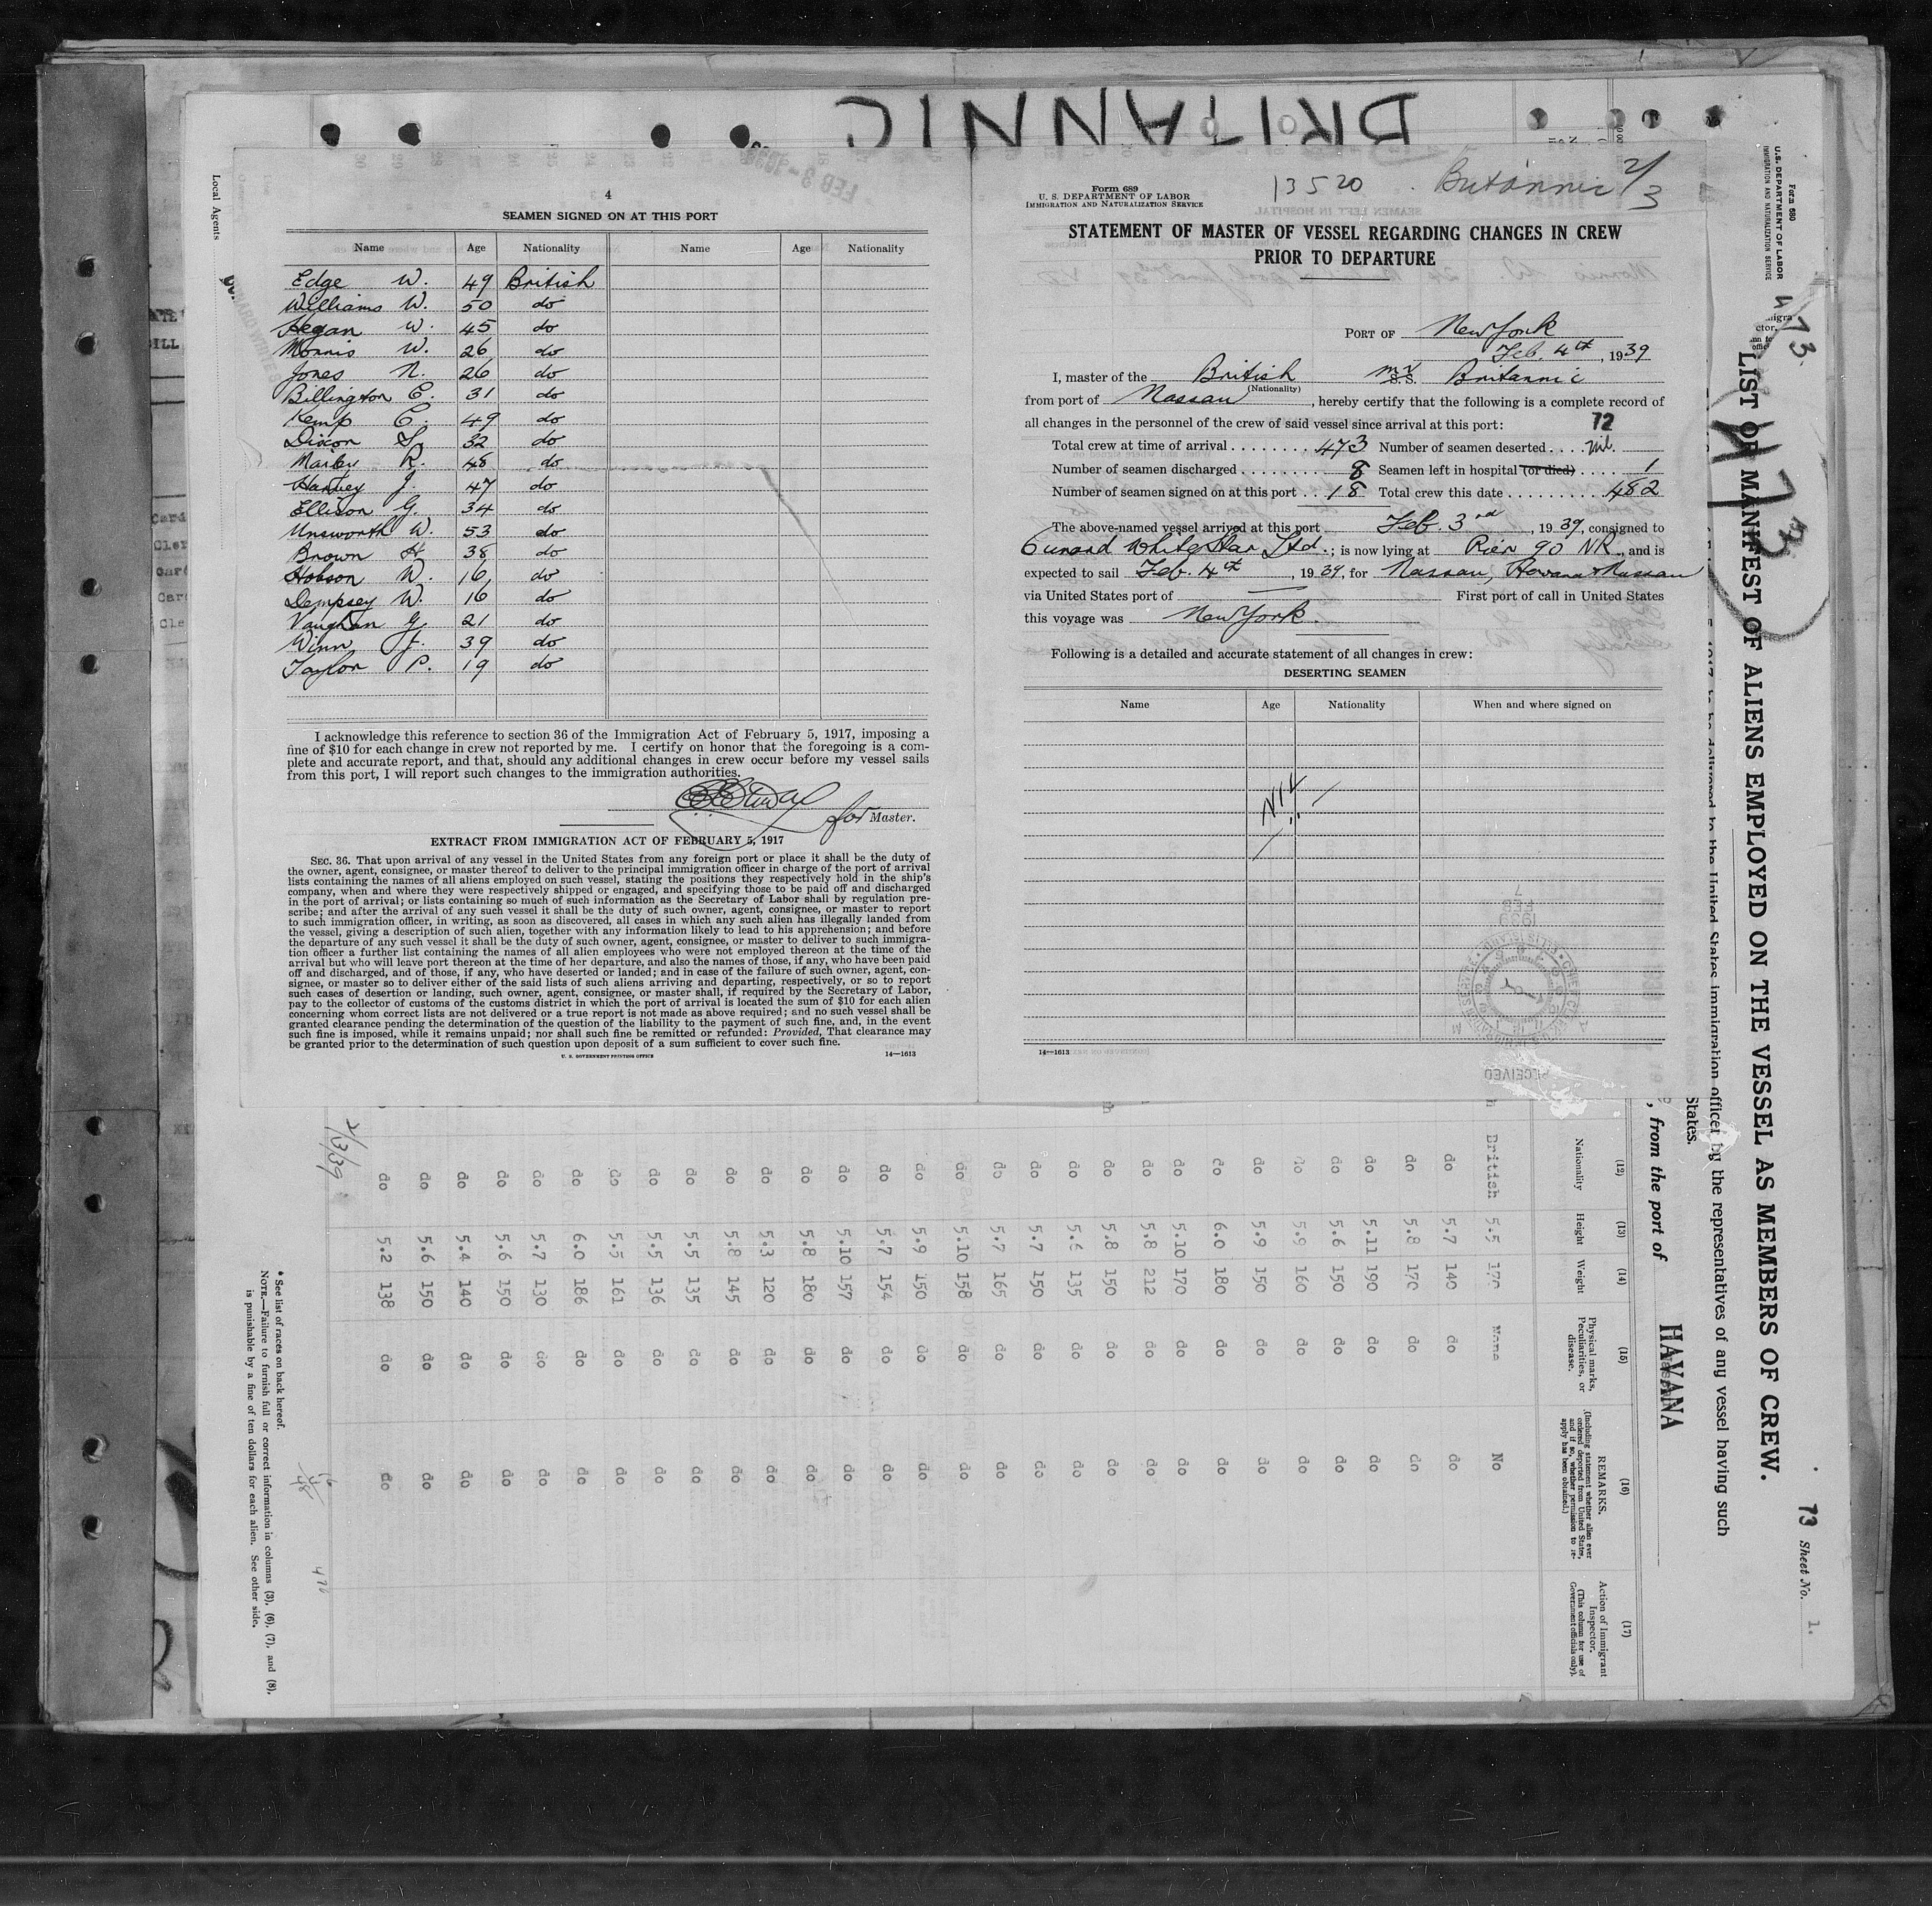 BRITANNIC
Local Agents
4
SEAMEN SIGNED ON AT THIS PORT
Name Age Nationality Name Age Nationality
Edge W. 49 British
Williams W. 50 do
Hegan W. 45 do
Morris W. 26 do
Jones N. 26 do
Billington E. 31 do
Kemp C. 49 do
Dixon 32 do
R. 48 do
J. 47 do
Ellison G. 34 do
Unsworth W. 53 do
Brown H. 38 do
Hobson W. 16 do
Dempsey W. 16 do
Vaughan G. 21 do
Winn J. 39 do
Taylor P. 19 do
I acknowledge this reference to section 36 of the Immigration Act of February 5, 1917, imposing a
fine of $10 for each change in crew not reported by me. I certify on honor that the foregoing is a com-
plete and accurate report, and that, should any additional changes in crew occur before my vessel sails
from this port, I will report such changes to the immigration authorities.
for Master.
EXTRACT FROM IMMIGRATION ACT OF FEBRUARY 5, 1917
SEC. 36. That upon arrival of any vessel in the United States from any foreign port or place it shall be the duty of
the owner, agent, consignee, or master thereof to deliver to the principal immigration officer in charge of the port of arrival
lists containing the names of all aliens employed on such vessel, stating the positions they respectively hold in the ship's
company, when and where they were respectively shipped or engaged, and specifying those to be paid off and discharged
in the port of arrival; or lists containing so much of such information as the Secretary of Labor shall by regulation pre-
scribe; and after the arrival of any such vessel it shall be the duty of such owner, agent, consignee, or master to report
to such immigration officer, in writing, as soon as discovered, all cases in which any such alien has illegally landed from
the vessel, giving a description of such alien, together with any information likely to lead to his apprehension; and before
the departure of any such vessel it shall be the duty of such owner, agent, consignee, or master to deliver to such immigra-
tion officer a further list containing the names of all alien employees who were not employed thereon at the time of the
arrival but who will leave port thereon at the time of her departure, and also the names of those, if any, who have been paid
off and discharged, and of those, if any, who have deserted or landed; and in case of the failure of such owner, agent, con-
signee, or master so to deliver either of the said lists of such aliens arriving and departing, respectively, or so to report
such cases of desertion or landing, such owner, agent, consignee, or master shall, if required by the Secretary of Labor,
pay to the collector of customs of the customs district in which the port of arrival is located the sum of $10 for each alien
concerning whom correct lists are not delivered or a true report is not made as above required; and no such vessel shall be
granted clearance pending the determination of the question of the liability to the payment of such fine, and, in the event
such fine is imposed, while it remains unpaid; nor shall such fine be remitted or refunded: Provided, That clearance may
be granted prior to the determination of such question upon deposit of a sum sufficient to cover such fine.
U. S. GOVERNMENT PRINTING OFFICE 14—1613
13520 Britannic 2/3
Form 689
U. S. DEPARTMENT OF LABOR
IMMIGRATION AND NATURALIZATION SERVICE
STATEMENT OF MASTER OF VESSEL REGARDING CHANGES IN CREW
PRIOR TO DEPARTURE
PORT OF New York
Feb. 4th, 1939
I, master of the British M V S. S. Britannic
(Nationality)
from port of Nassau, hereby certify that the following is a complete record of
all changes in the personnel of the crew of said vessel since arrival at this port: 72
Total crew at time of arrival 473 Number of seamen deserted Nil.
Number of seamen discharged 8 Seamen left in hospital (or died) 1
Number of seamen signed on at this port 18 Total crew this date 482
The above-named vessel arrived at this port Feb. 3rd, 1939, consigned to
Cunard White Star Ltd.; is now lying at Pier 90 NR, and is
expected to sail Feb. 4th, 1939, for Nassau, Havana & Nassau
via United States port of First port of call in United States
this voyage was New York.
Following is a detailed and accurate statement of all changes in crew:
DESERTING SEAMEN
Name Age Nationality When and where signed on
NIL
14—1613
RECEIVED
FEB 7 1939
Form 680
U. S. DEPARTMENT OF LABOR
IMMIGRATION AND NATURALIZATION SERVICE
473
73 Sheet No. 1.
LIST OF MANIFEST OF ALIENS EMPLOYED ON THE VESSEL AS MEMBERS OF CREW.
to be delivered to the United States immigration officer by the representatives of any vessel having such
States.
, from the port of HAVANA
(12) (13) (14) (15) (16) (17)
Nationality Height Weight Physical marks, Peculiarities, or disease. REMARKS. (Including statement whether alien ever ordered deported from United States, and if so, whether permission to re-apply has been obtained.) Action of Immigrant Inspector. (This column for use of Government officials only).
British 5.5 170 None No
do 5.7 140 do do
do 5.8 170 do do
do 5.11 190 do do
do 5.6 150 do do
do 5.9 160 do do
do 5.9 150 do do
do 6.0 180 do do
do 5.10 170 do do
do 5.8 212 do do
do 5.8 150 do do
do 5.6 135 do do
do 5.7 150 do do
do 5.7 165 do do
do 5.10 158 do do
do 5.9 150 do do
do 5.7 154 do do
do 5.10 157 do do
do 5.8 180 do do
do 5.3 120 do do
do 5.8 145 do do
do 5.5 135 do do
do 5.5 136 do do
do 5.5 161 do do
do 6.0 186 do do
do 5.7 130 do do
do 5.6 150 do do
do 5.4 140 do do
do 5.6 150 do do
do 5.2 138 do do
2/3/39
* See list of races on back hereof.
NOTE.—Failure to furnish full or correct information in columns (3), (6), (7), and (8),
is punishable by a fine of ten dollars for each alien. See other side.